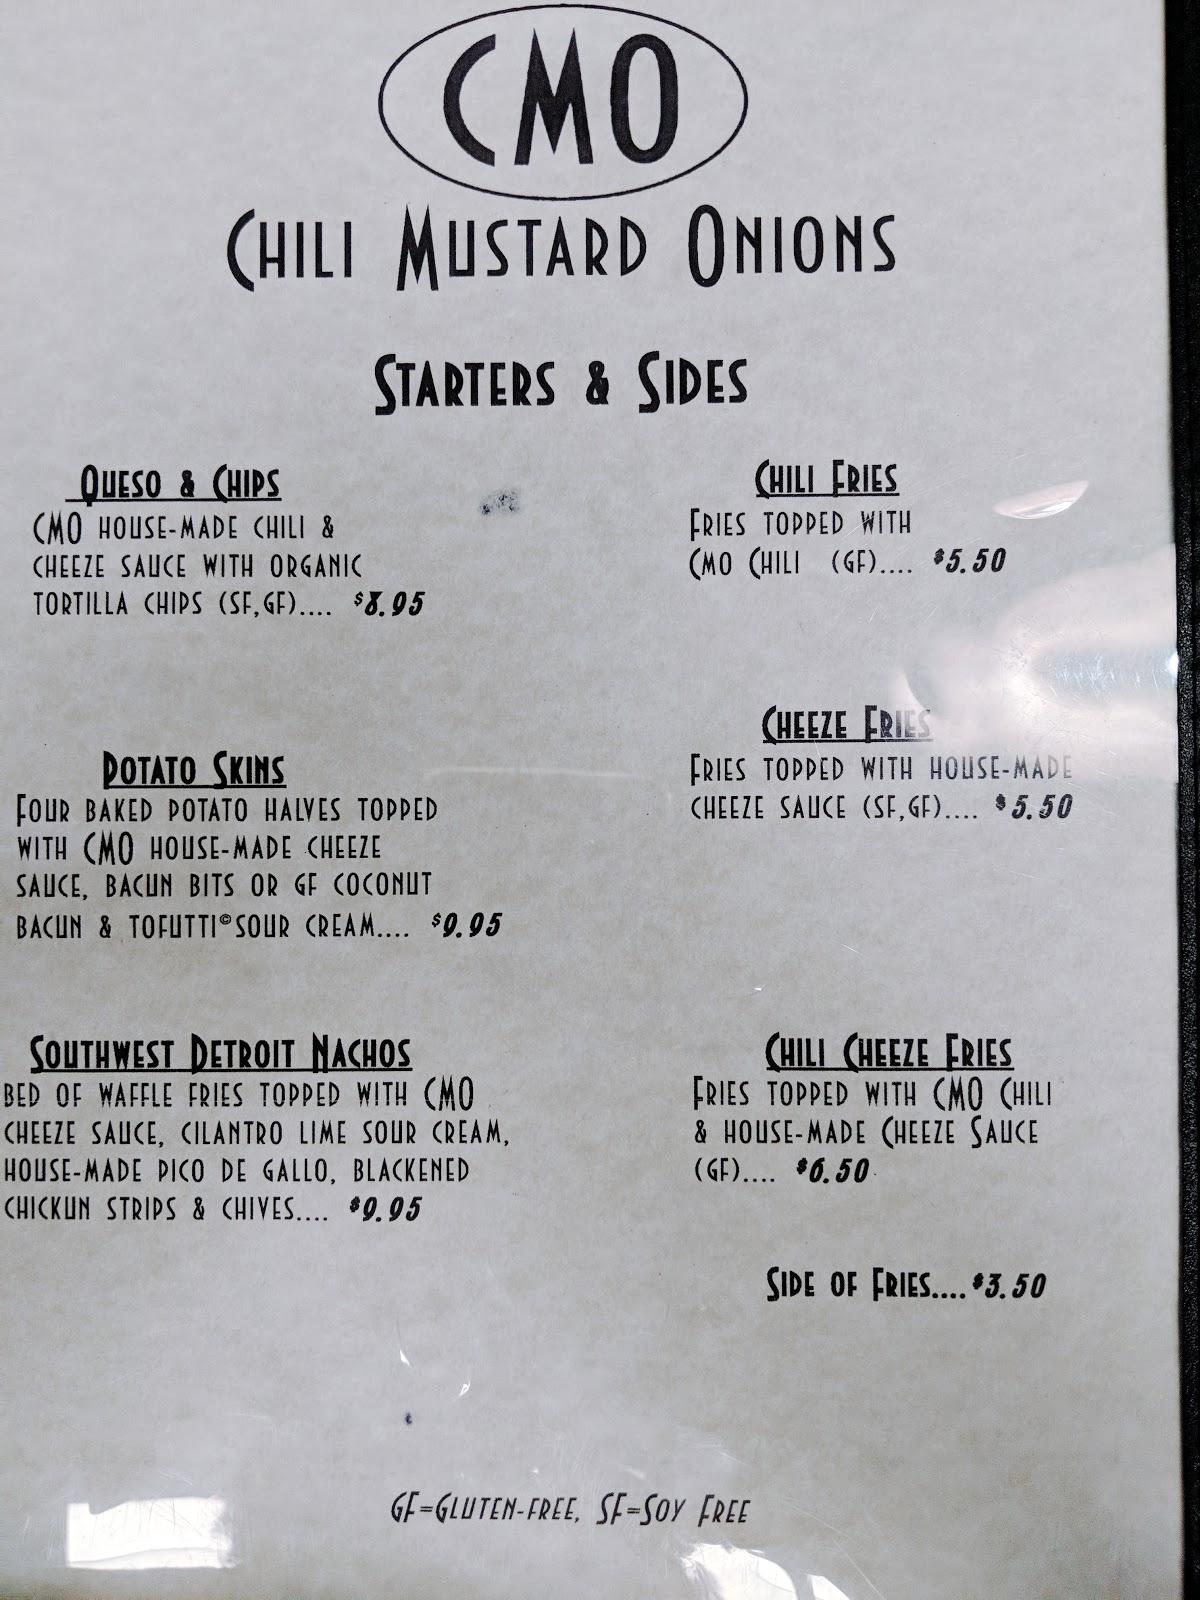 CMO
CHILI MUSTARD ONIONS
STARTERS & SIDES
QUESO & CHIPS
CMO HOUSE-MADE CHILI &
CHEEZE SAUCE WITH ORGANIC
TORTILLA CHIPS (SF,GF).... $8.95
POTATO SKINS
FOUR BAKED POTATO HALVES TOPPED
WITH CMO HOUSE-MADE CHEEZE
SAUCE, BACUN BITS OR GF COCONUT
BACUN & TOFUTTI©SOUR CREAM.... $9.95
SOUTHWEST DETROIT NACHOS
BED OF WAFFLE FRIES TOPPED WITH CMO
CHEEZE SAUCE, CILANTRO LIME SOUR CREAM,
HOUSE-MADE PICO DE GALLO, BLACKENED
CHICKUN STRIPS & CHIVES.... $9.95
CHILI FRIES
FRIES TOPPED WITH
CMO CHILI (GF).... $5.50
CHEEZE FRIES
FRIES TOPPED WITH HOUSE-MADE
CHEEZE SAUCE (SF,GF).... $5.50
CHILI CHEEZE FRIES
FRIES TOPPED WITH CMO CHILI
& HOUSE-MADE CHEEZE SAUCE
(GF).... $6.50
SIDE OF FRIES....$3.50
GF=GLUTEN-FREE, SF=SOY FREE